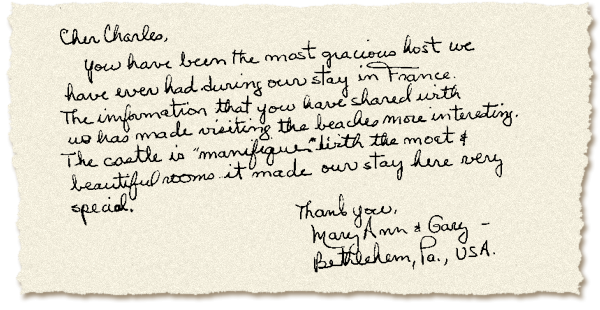 Cher Charles,
You have been the most gracious host we
have ever had during our stay in France.
The information that you have shared with
us has made visiting the beaches more interesting.
The castle is "manifique". With the moat &
beautiful rooms it made our stay here very
special.
Thank you,
Mary Ann & Gary -
Bethlehem, Pa., USA.